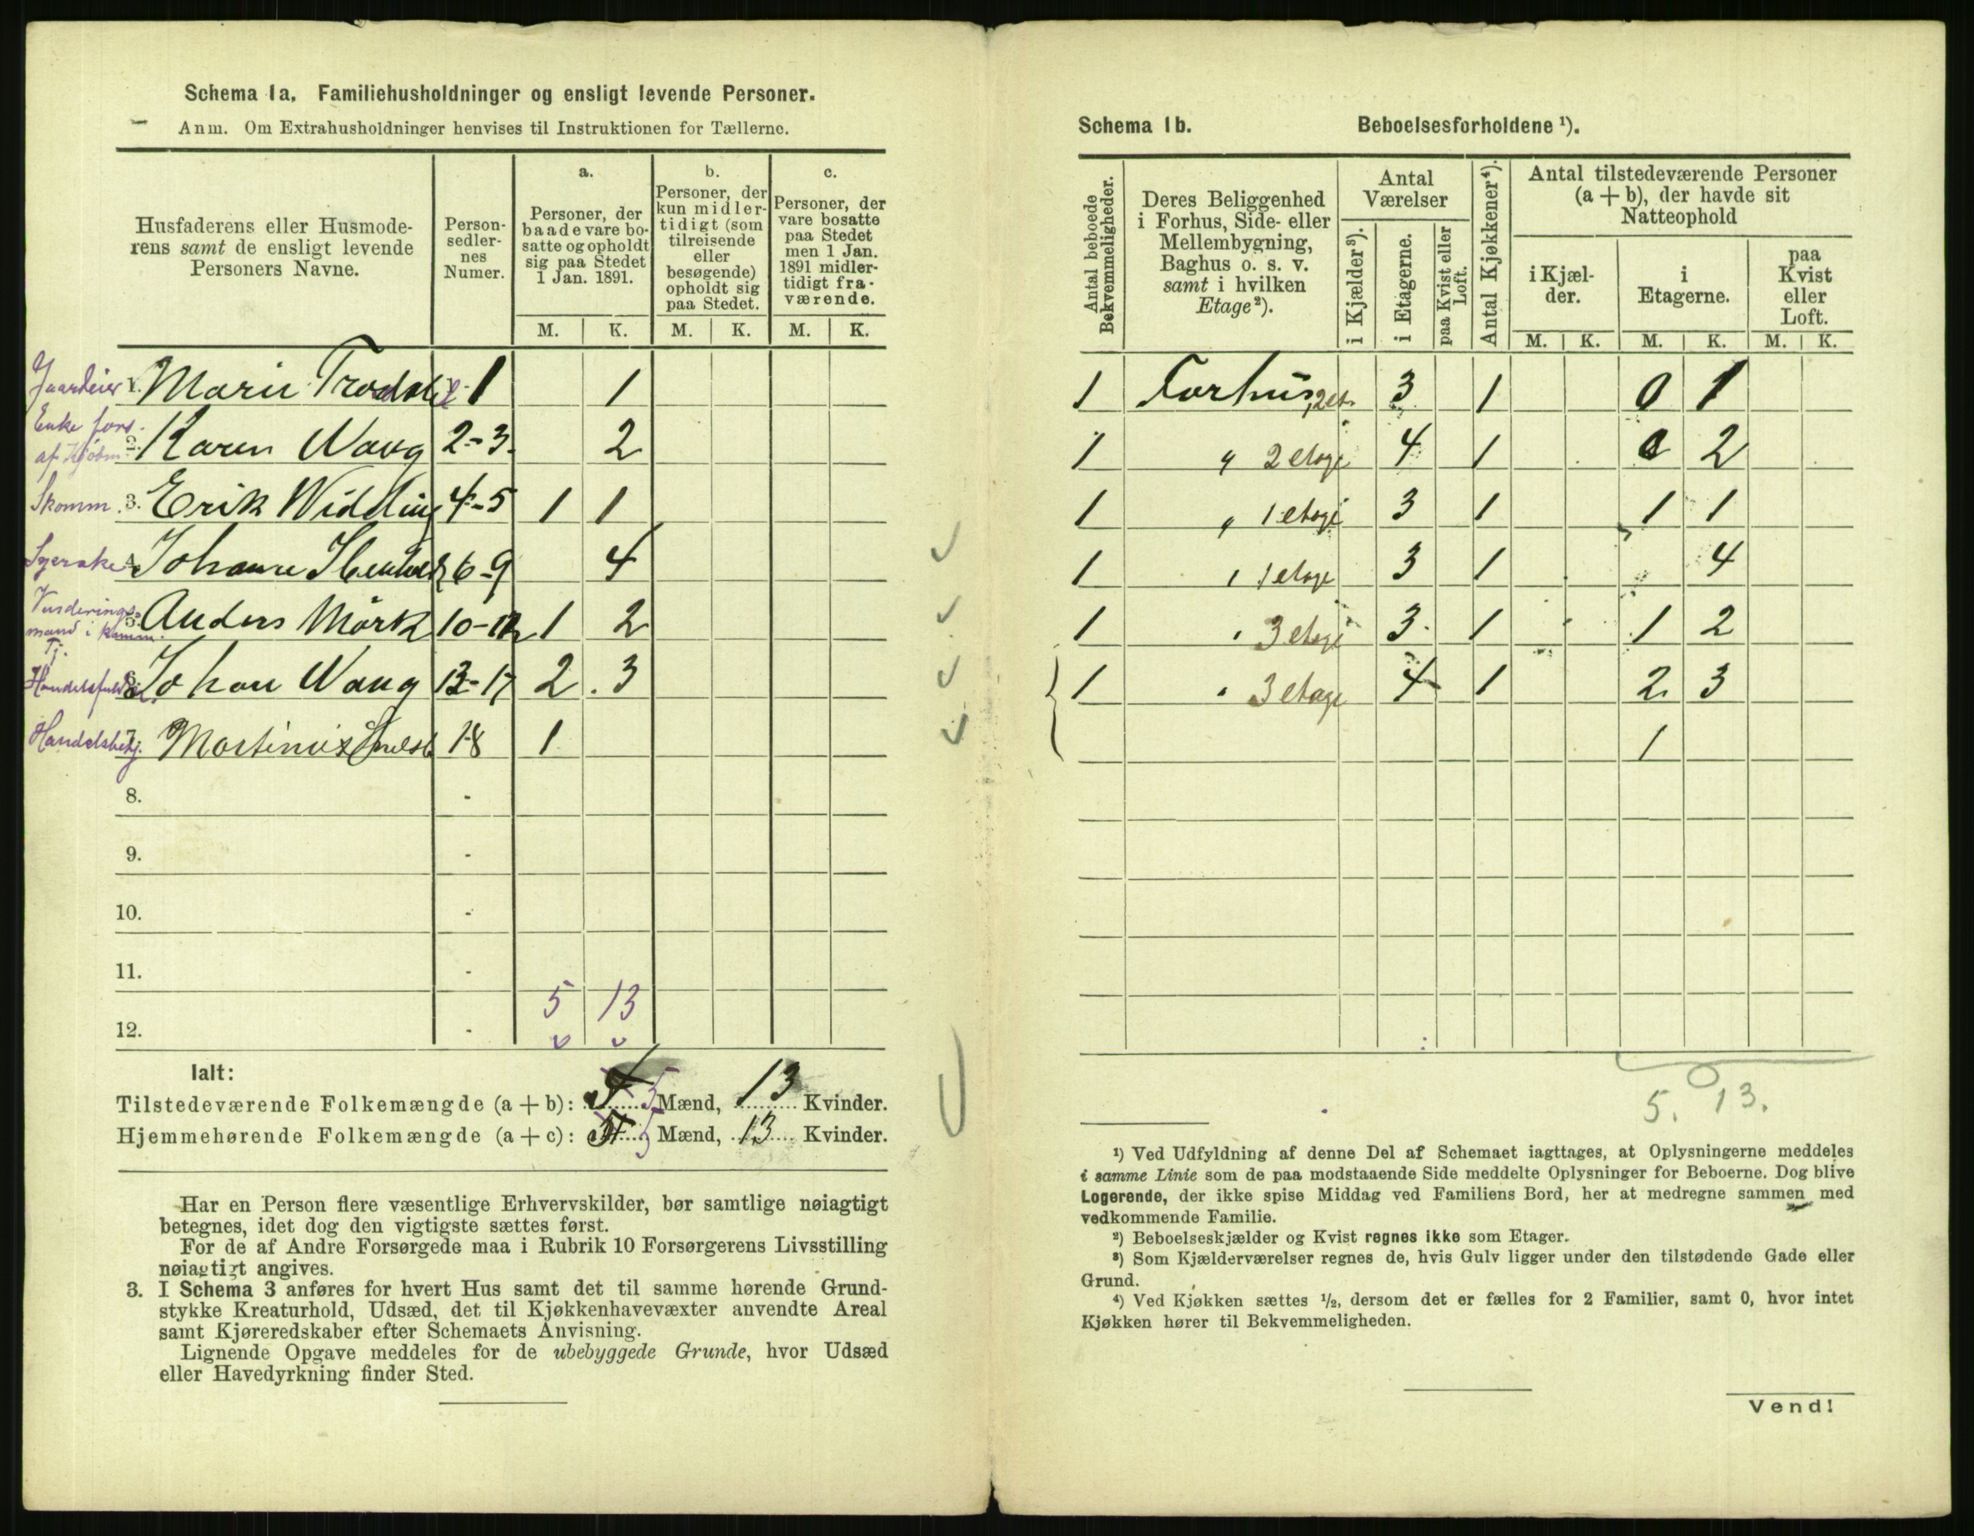 Schema 1a. Familiehusholdninger og ensligt levende Personer.
Anm. Om Extrahusholdninger henvises til Instruktionen for Tællerne.
Husfaderens eller Husmoderens samt de ensligt levende Personers Navne.
Person-sedlernes Numer.
a. Personer, der baade vare bosatte og opholdt sig paa Stedet 1 Jan. 1891.
b. Personer, der kun midlertidigt (som tilreisende eller besøgende) opholdt sig paa Stedet.
c. Personer, der vare bosatte paa Stedet men 1 Jan. 1891 midlertidigt fraværende.
M. K. M. K. M. K.
Gaardeier 1. Marie 1 1
Enke fors. af Kjøbm. 2. Karen Waug 2-3. 2
Skomm. 3. Erik Widding 4-5 1 1
Syerske 4. Johanne 6-9 4
Vurderingsmand i Komm. Tj. 5. Anders Mörk 10-12 1 2
6. Johan Waug 13-17 2. 3
Handelsbetj. 7. Martinius 18 1
8. -
9. -
10. -
11. -
5 13
12. -
Ialt:
Tilstedeværende Folkemængde (a + b): 5 Mænd, 13 Kvinder.
Hjemmehørende Folkemængde (a + c): 5 Mænd, 13 Kvinder.
Har en Person flere væsentlige Erhvervskilder, bør samtlige nøiagtigt
betegnes, idet dog den vigtigste sættes først.
For de af Andre Forsørgede maa i Rubrik 10 Forsørgerens Livsstilling
nøiagtigt angives.
3. I Schema 3 anføres for hvert Hus samt det til samme hørende Grund-
stykke Kreaturhold, Udsæd, det til Kjøkkenhavevæxter anvendte Areal
samt Kjøreredskaber efter Schemaets Anvisning.
Lignende Opgave meddeles for de ubebyggede Grunde, hvor Udsæd
eller Havedyrkning finder Sted.
Schema 1b. Beboelsesforholdene ¹).
Antal beboede Bekvemmeligheder.
Deres Beliggenhed i Forhus, Side- eller Mellembygning, Baghus o. s. v. samt i hvilken Etage²).
Antal Værelser
i Kjælder³).
i Etagerne.
paa Kvist eller Loft.
Antal Kjøkkener⁴).
Antal tilstedeværende Personer (a + b), der havde sit Natteophold
i Kjælder.
i Etagerne.
paa Kvist eller Loft.
M. K. M. K. M. K.
1 Forhus, 2 et. 3 1 0 1
1 " 2 etage 4 1 0 2
1 " 1 etage 3 1 1 1
1 " 1 etage 3 1 4
1 " 3 etage 3 1 1 2
1 " 3 etage 4 1 2 3
1
5. 13.
¹) Ved Udfyldning af denne Del af Schemaet iagttages, at Oplysningerne meddeles
i samme Linie som de paa modstaaende Side meddelte Oplysninger for Beboerne. Dog blive
Logerende, der ikke spise Middag ved Familiens Bord, her at medregne sammen med
vedkommende Familie.
²) Beboelseskjælder og Kvist regnes ikke som Etager.
³) Som Kjælderværelser regnes de, hvis Gulv ligger under den tilstødende Gade eller
Grund.
⁴) Ved Kjøkken sættes ½, dersom det er fælles for 2 Familier, samt 0, hvor intet
Kjøkken hører til Bekvemmeligheden.
Vend!